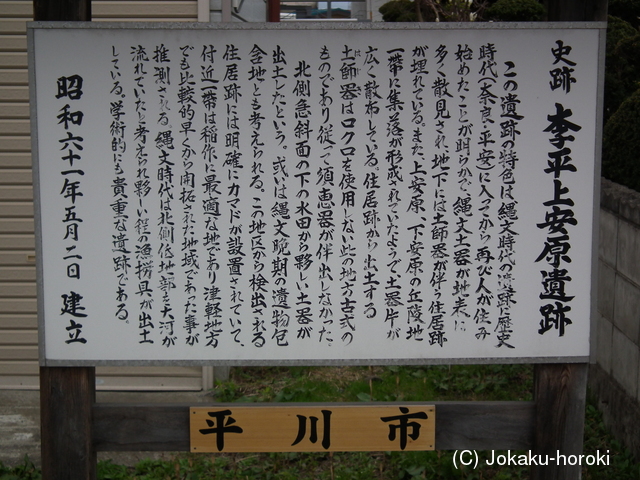 史跡 李平上安原遺跡
この遺跡の特色は、縄文時代の遺跡に歴史
時代(奈良・平安に入ってから再び人が住み
始めたことが明らかで、縄文土器が地表に
多く散見され、地下には土師器が伴う住居跡
が埋れている。また、上安原、下安原の丘陵地
一帯に集落が形成されていたようで、土器片が
広く散布している。住居跡から出土する
土師器はロクロを使用しない此の地方古式の
ものであり従って須恵器が伴出しなかった。
北側急斜面の下の水田から夥しい土器が
出土したという。或いは縄文晩期の遺物包
含地とも考えられる。この地区から検出される
住居跡には明確にカマドが設置されていて、
付近一帯は稲作に最適な地であり、津軽地方
でも比較的早くから開拓された地域であった事が
推測される。縄文時代は北側低地部を大河が
流れていたと考えられ夥しい程の漁撈具が出土
している。学術的にも貴重な遺跡である。
昭和六十一年五月二日 建立
平川市
(C) Jokaku-horoki